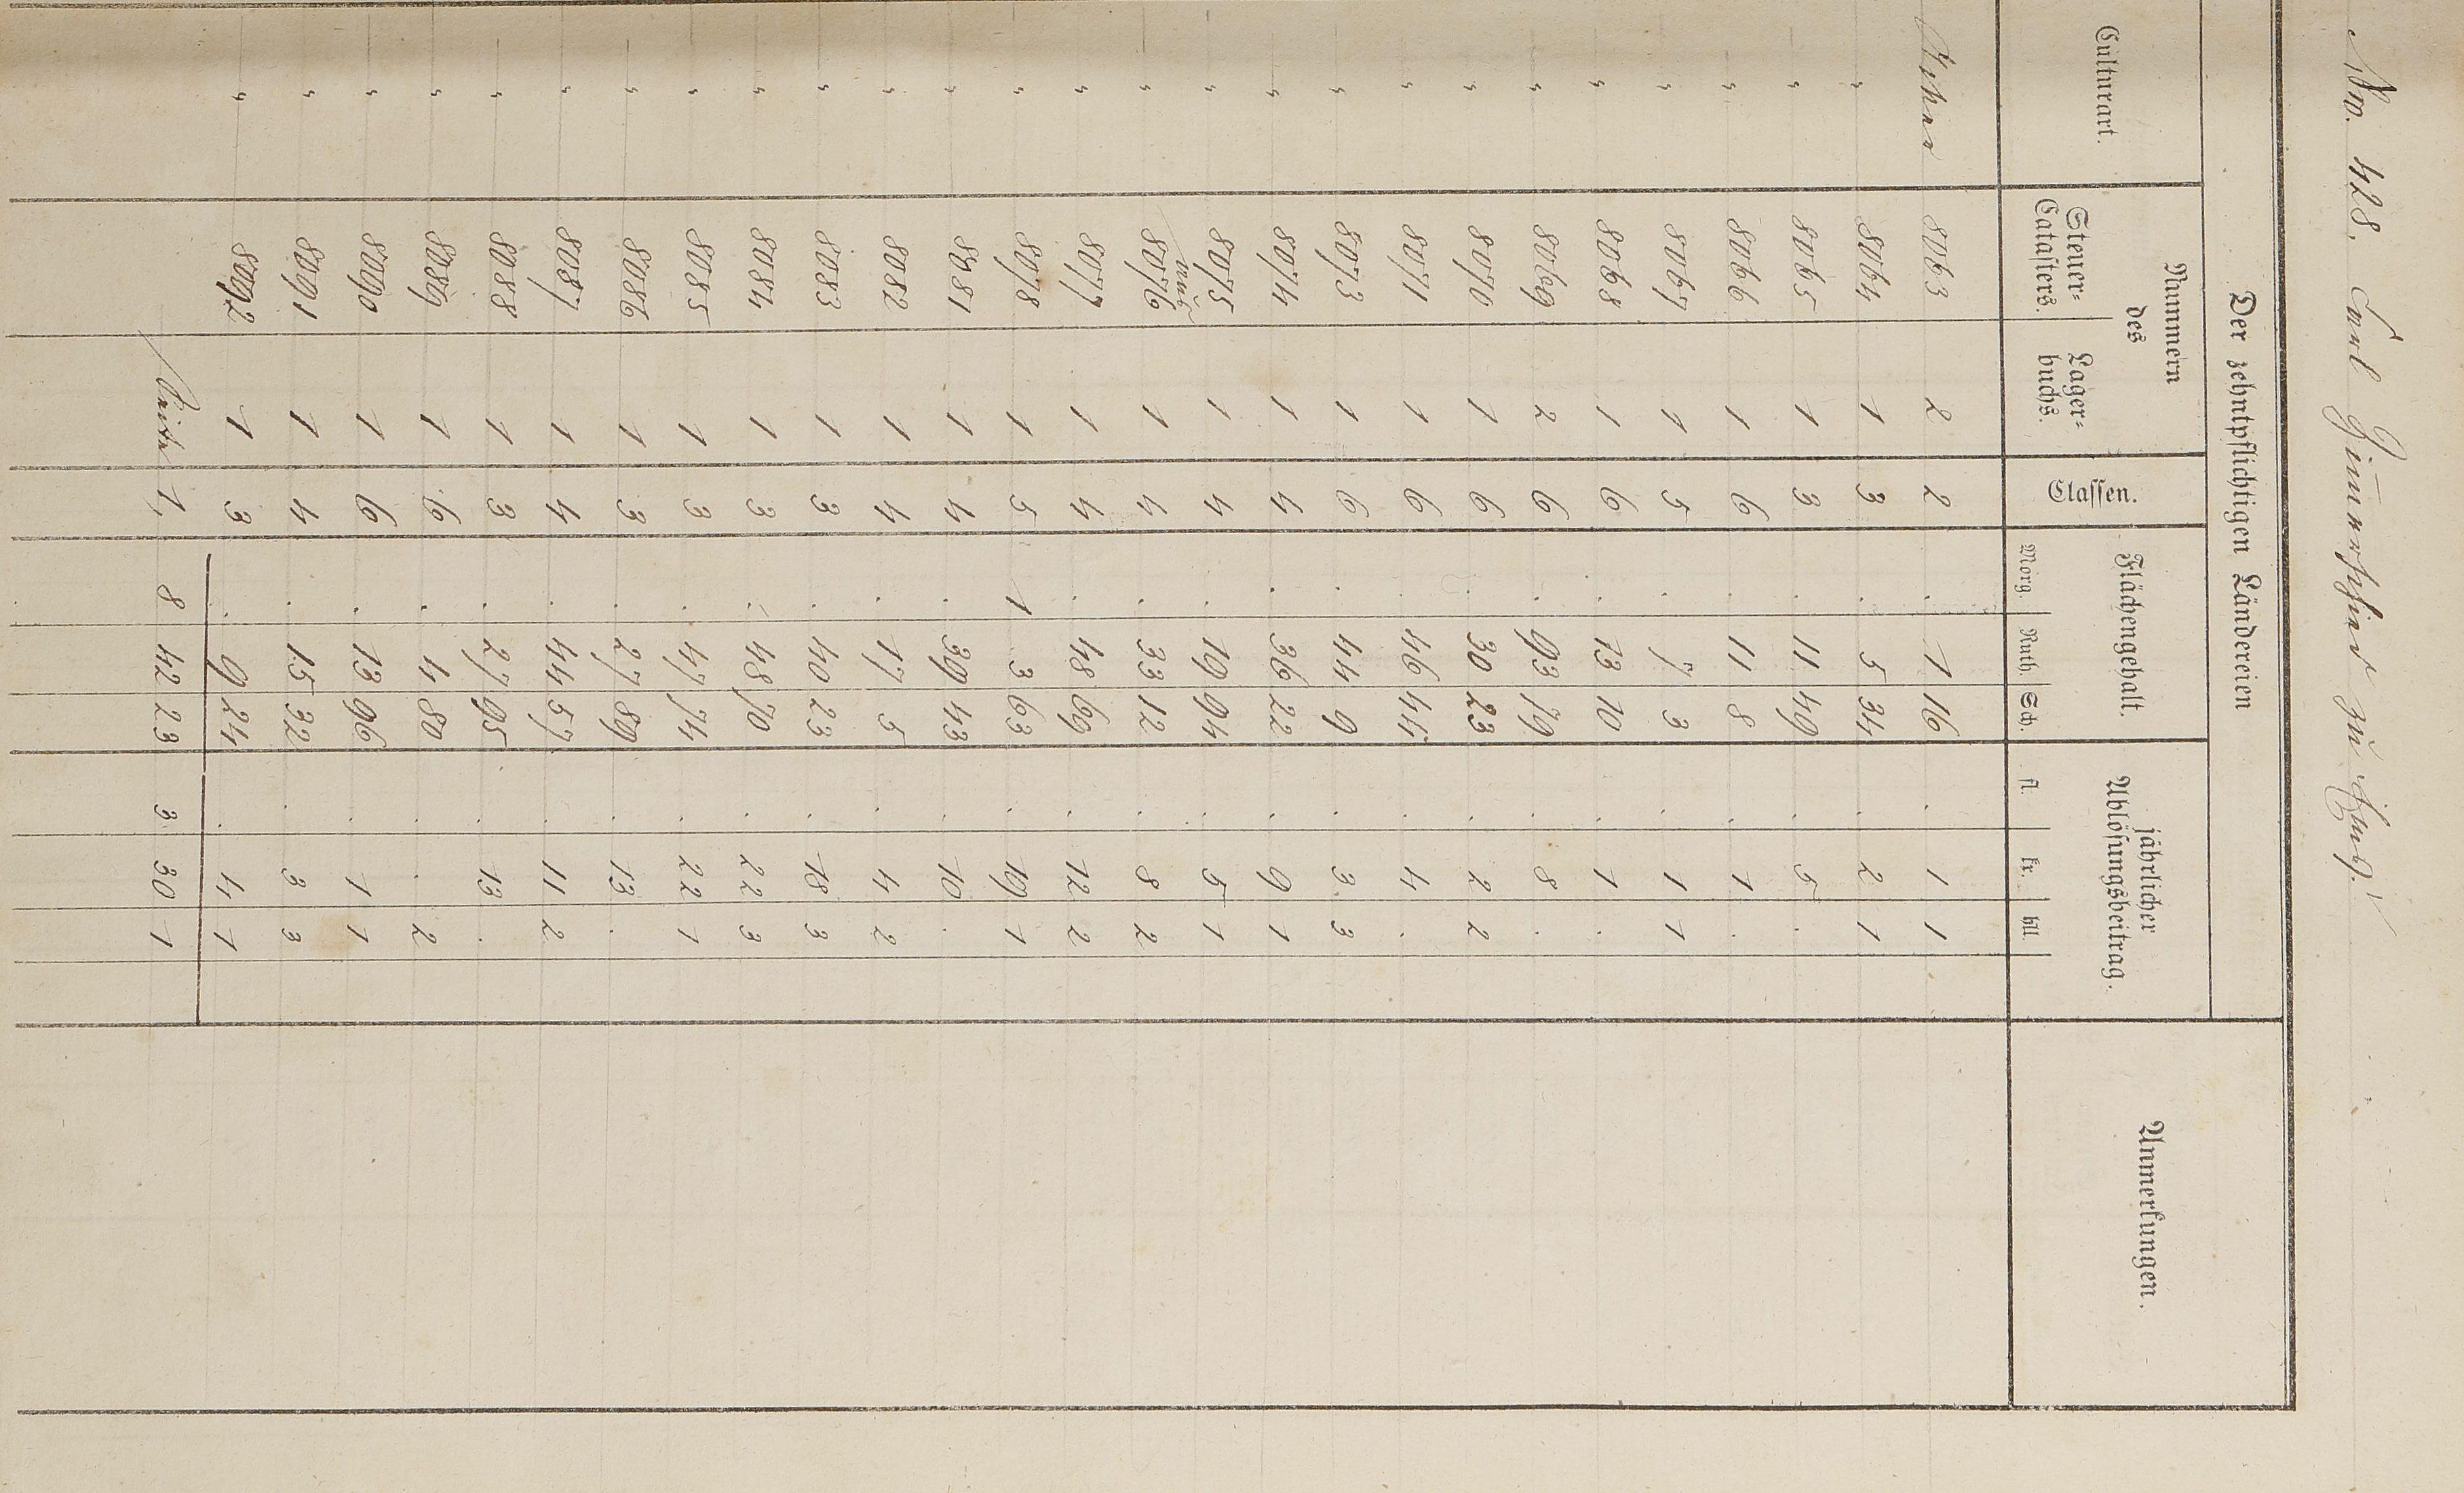 Nro. 428. Carl Zim̅erschied zu
Der zehntpflichtigen Ländereien
Culturart.
Nummern
des
Steuer=
Catasters.
Lager=
buchs.
Classen.
Flächengehalt.
Morg. Ruth. Sch.
jährlicher
Ablösungsbeitrag.
fl. kr. hll.
Anmerkungen.
Acker 8063 2 2 . 1 16 . 1 1
" 8064 1 3 . 5 34 . 2 1
" 8065 1 3 . 11 49 . 5 .
" 8066 1 6 . 11 8 . 1 .
" 8067 1 5 . 7 3 . 1 1
" 8068 1 6 . 13 10 . 1 .
" 8069 2 6 . 93 79 . 8 .
" 8070 1 6 . 30 23 . 2 2
" 8071 1 6 . 46 44 . 4 .
" 8073 1 6 . 44 9 . 3 3
" 8074 1 4 . 36 22 . 9 1
" 8075 1 4 . 19 94 . 5 1
" 8076 1 4 . 33 12 . 8 2
" 8077 1 4 . 48 69 . 12 2
" 8078 1 5 1 3 63 . 19 1
" 8081 1 4 . 39 43 . 10 .
" 8082 1 4 . 17 5 . 4 2
" 8083 1 3 . 40 23 . 18 3
" 8084 1 3 . 48 70 . 22 3
" 8085 1 3 . 47 74 . 22 1
" 8086 1 3 . 27 89 . 13 .
" 8087 1 4 . 44 57 . 11 2
" 8088 1 3 . 27 95 . 13 .
" 8089 1 6 . 4 80 . . 2
" 8090 1 6 . 13 96 . 1 1
" 8091 1 4 . 15 32 . 3 3
" 8092 1 3 . 9 24 . 4 1
Seite 1, 8 42 23 3 30 1